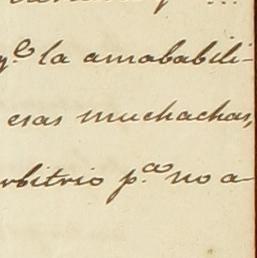 q.e la amababili-
esas muchachas,
rbitrio p.a no a-